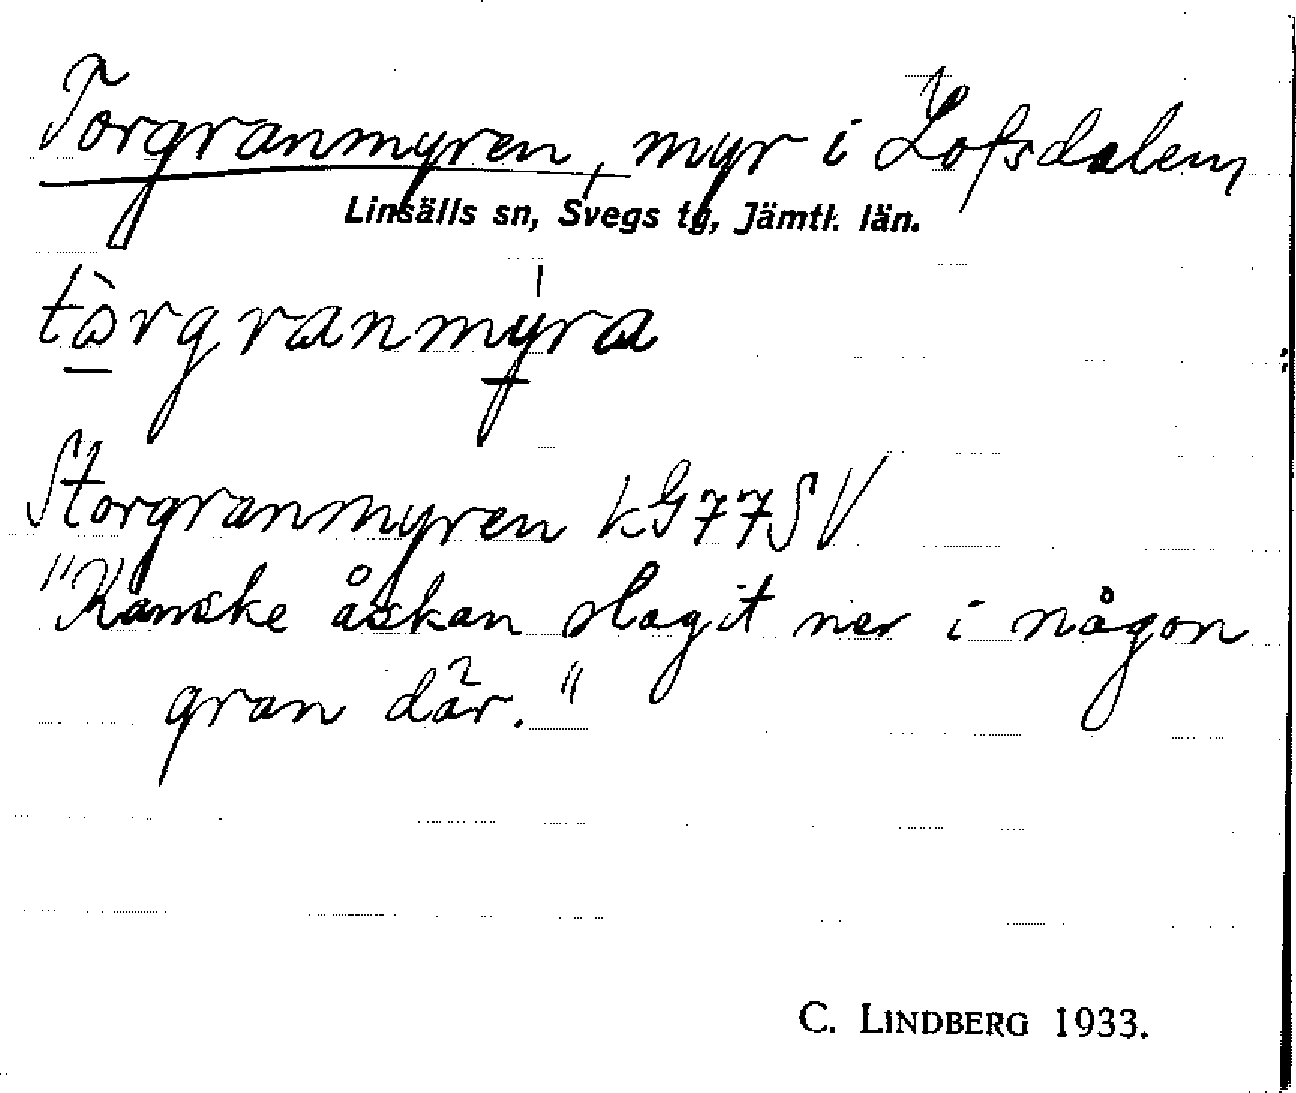 Torgranmyren, myr i Lofsdalen,
Linsälls sn, Svegs tg, Jämtl. län.
tòrgranmýra
Storgranmyren kG77SV
"Kanske åskan slagit ner i någon
gran där."
C. LINDBERG 1933.